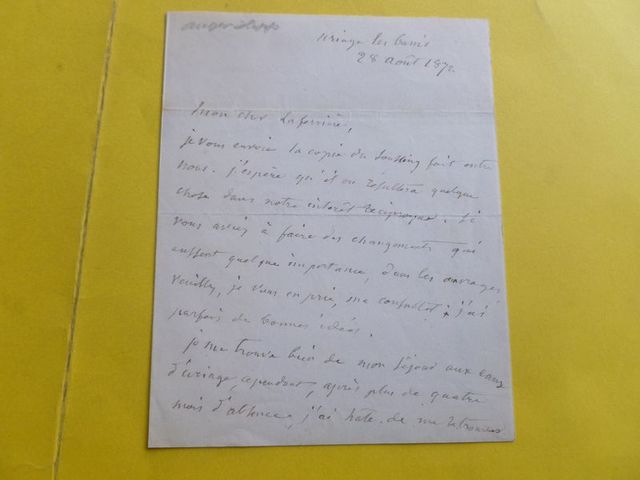 uriage les bains
28 août 1872
mon cher Laferrière,
je vous envoie la copie du fait entre
nous. j'espère qu'il en résultera quelque
chose dans notre intérêt réciproque. Si
vous aviez à faire des changements qui
eussent quelque importance, dans les ouvrages
veuillez, je vous en prie, me consulter j'ai
parfois de bonnes idées.
je me trouve bien de mon séjour aux eaux
d'uriage, cependant, après plus de quatre
mois d'absence, j'ai hate de me retrouver